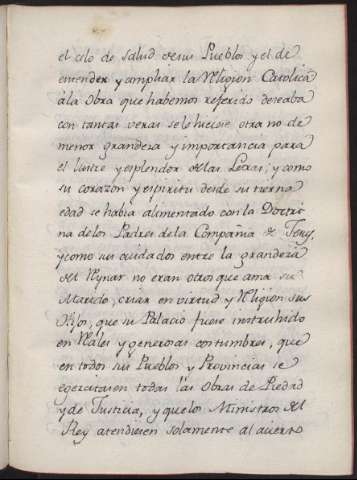 el celo de salud de sus Pueblos y el de
entender y ampliar la Religion Catolica
ála Obra que habemos referido deseaba
con tantas veras se le hiciese otra no de
menor grandeza y importancia para
el lustre y esplendor de las Letras; y como
su corazon y espiritu desde su tierna
edad se habia alimentado con la Doctri
na de los Padres de la Compañia de Jesus,
y como sus cuidados entre la grandeza
del Reynar no eran otros que amar su
Marido, criar en virtud y Religion sus
Hijos, que su Palacio fuese instruhido
en Reales y generosas costumbres, que
en todos sus Pueblos y Provincias se
egercitasen todas las Obras de Piedad
y de Justicia, y que los Ministros del
Rey atendiesen solamente al acierto